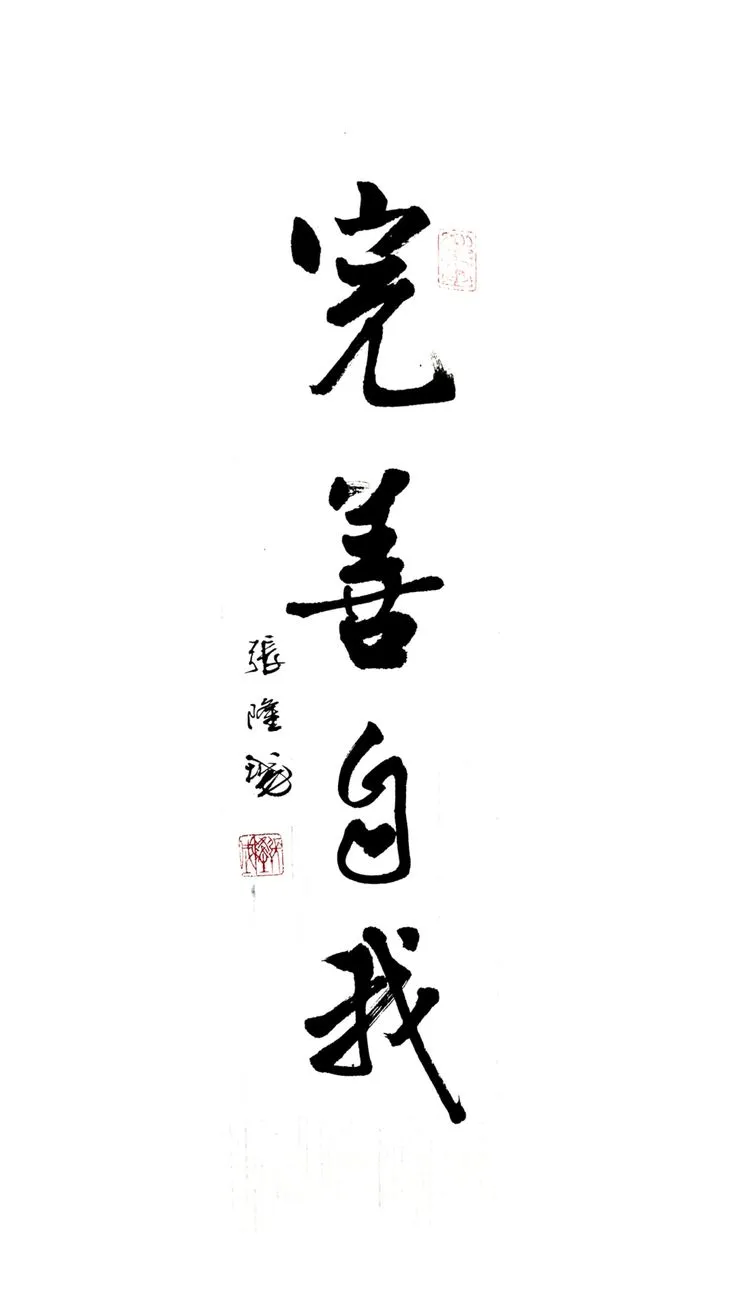 完善自我
張隆